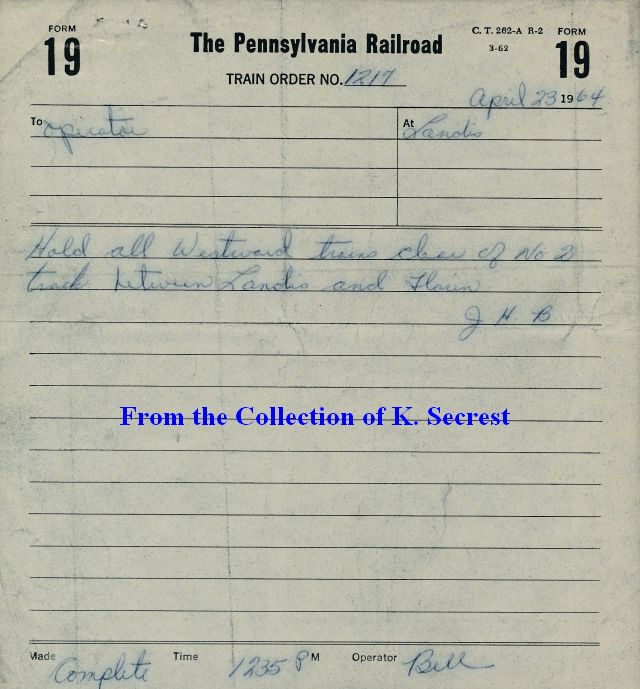 FORM
19
The Pennsylvania Railroad
C. T. 262-A R-2
3-62
FORM
19
TRAIN ORDER NO. 1217
April 23 1964
To Operator
At Landis
Hold all Westward trains clear of No 2
track between Landis and Florin
J H B
From the Collection of K. Secrest
Made Complete Time 1235 P M Operator Bill